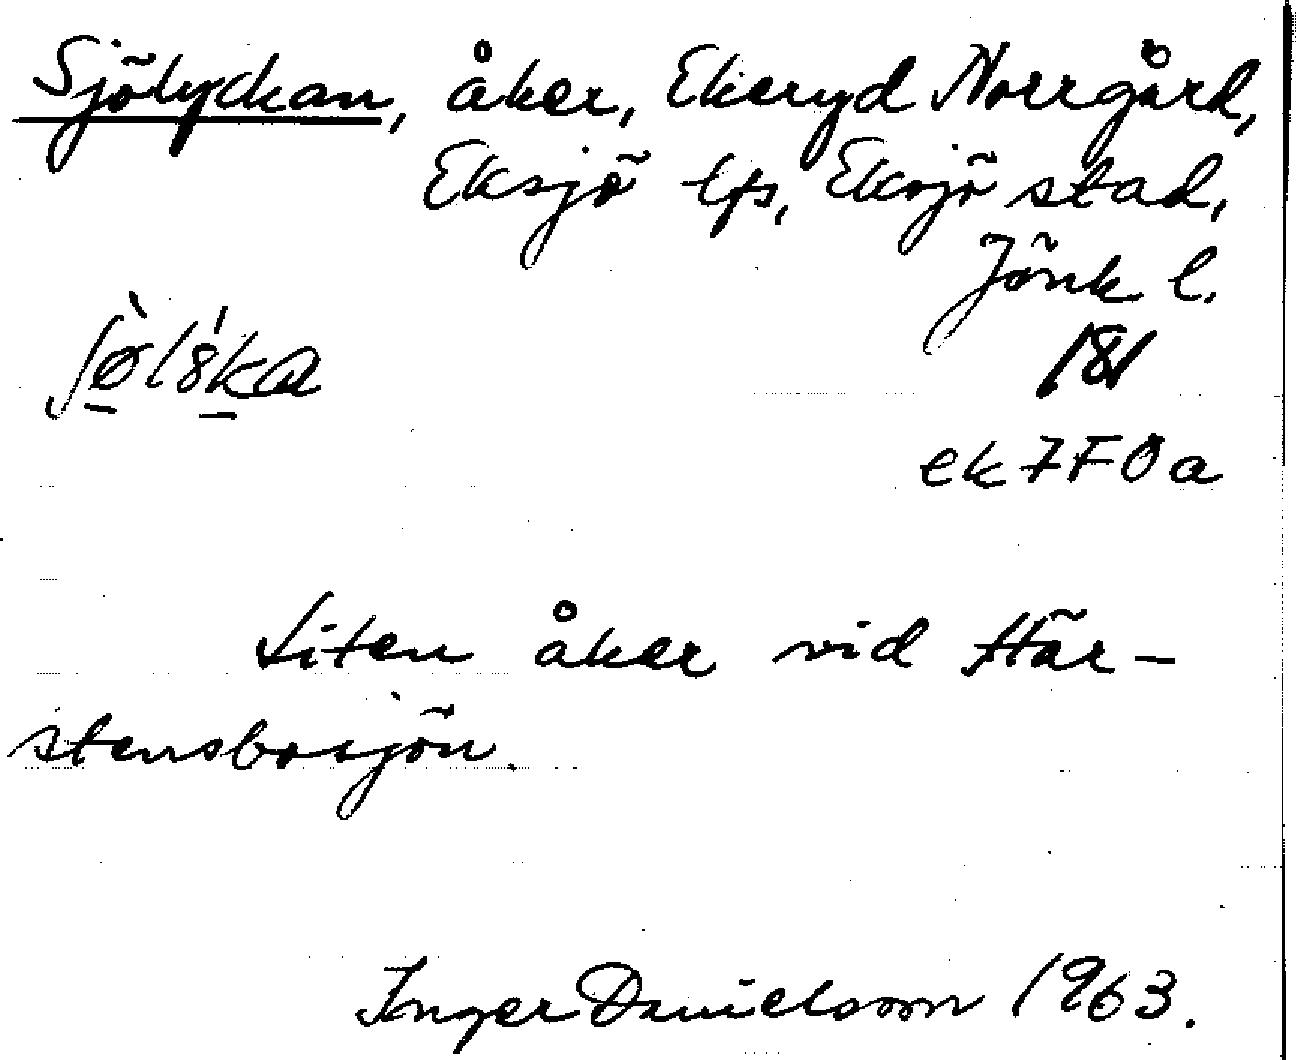 Sjölyckan, åker, Ekeryd Norrgård,
Eksjö lfs, Eksjö stad,
Jönk l.
181
ek 7F0a
Liten åker vid Här-
stensbosjön.
Inger Danielsson 1963.